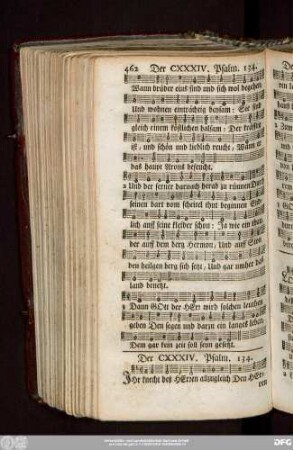 462 Der CXXXIV. Psalm. 134.
Wann brüder eins sind und sich wol begehen
Und wohnen einträchtig beysam: Sie sind
gleich einem köstlichen balsam: Der kräfftig
ist, und schön und lieblich reucht, Wann er
das haupt Arons befeucht.
2 Und der ferner darnach herab zu rinnen Durch
seinen bart vom scheitel thut beginnen End-
lich auff seine kleider schon: Ja wie ein thau
der auff dem berg Hermon, Und auff Sion
den heilgen berg sich setzt, Und gar umher das
land benetzt.
3 Dann GOtt der HErr wird solchen leuthen
geben Den segen und darzu ein langes leben
Dem gar kein zeit soll seyn gesetzt.
Der CXXXIV. Psalm. 134.
Ihr knecht deß HErren allzugleich Den HEr-
ren